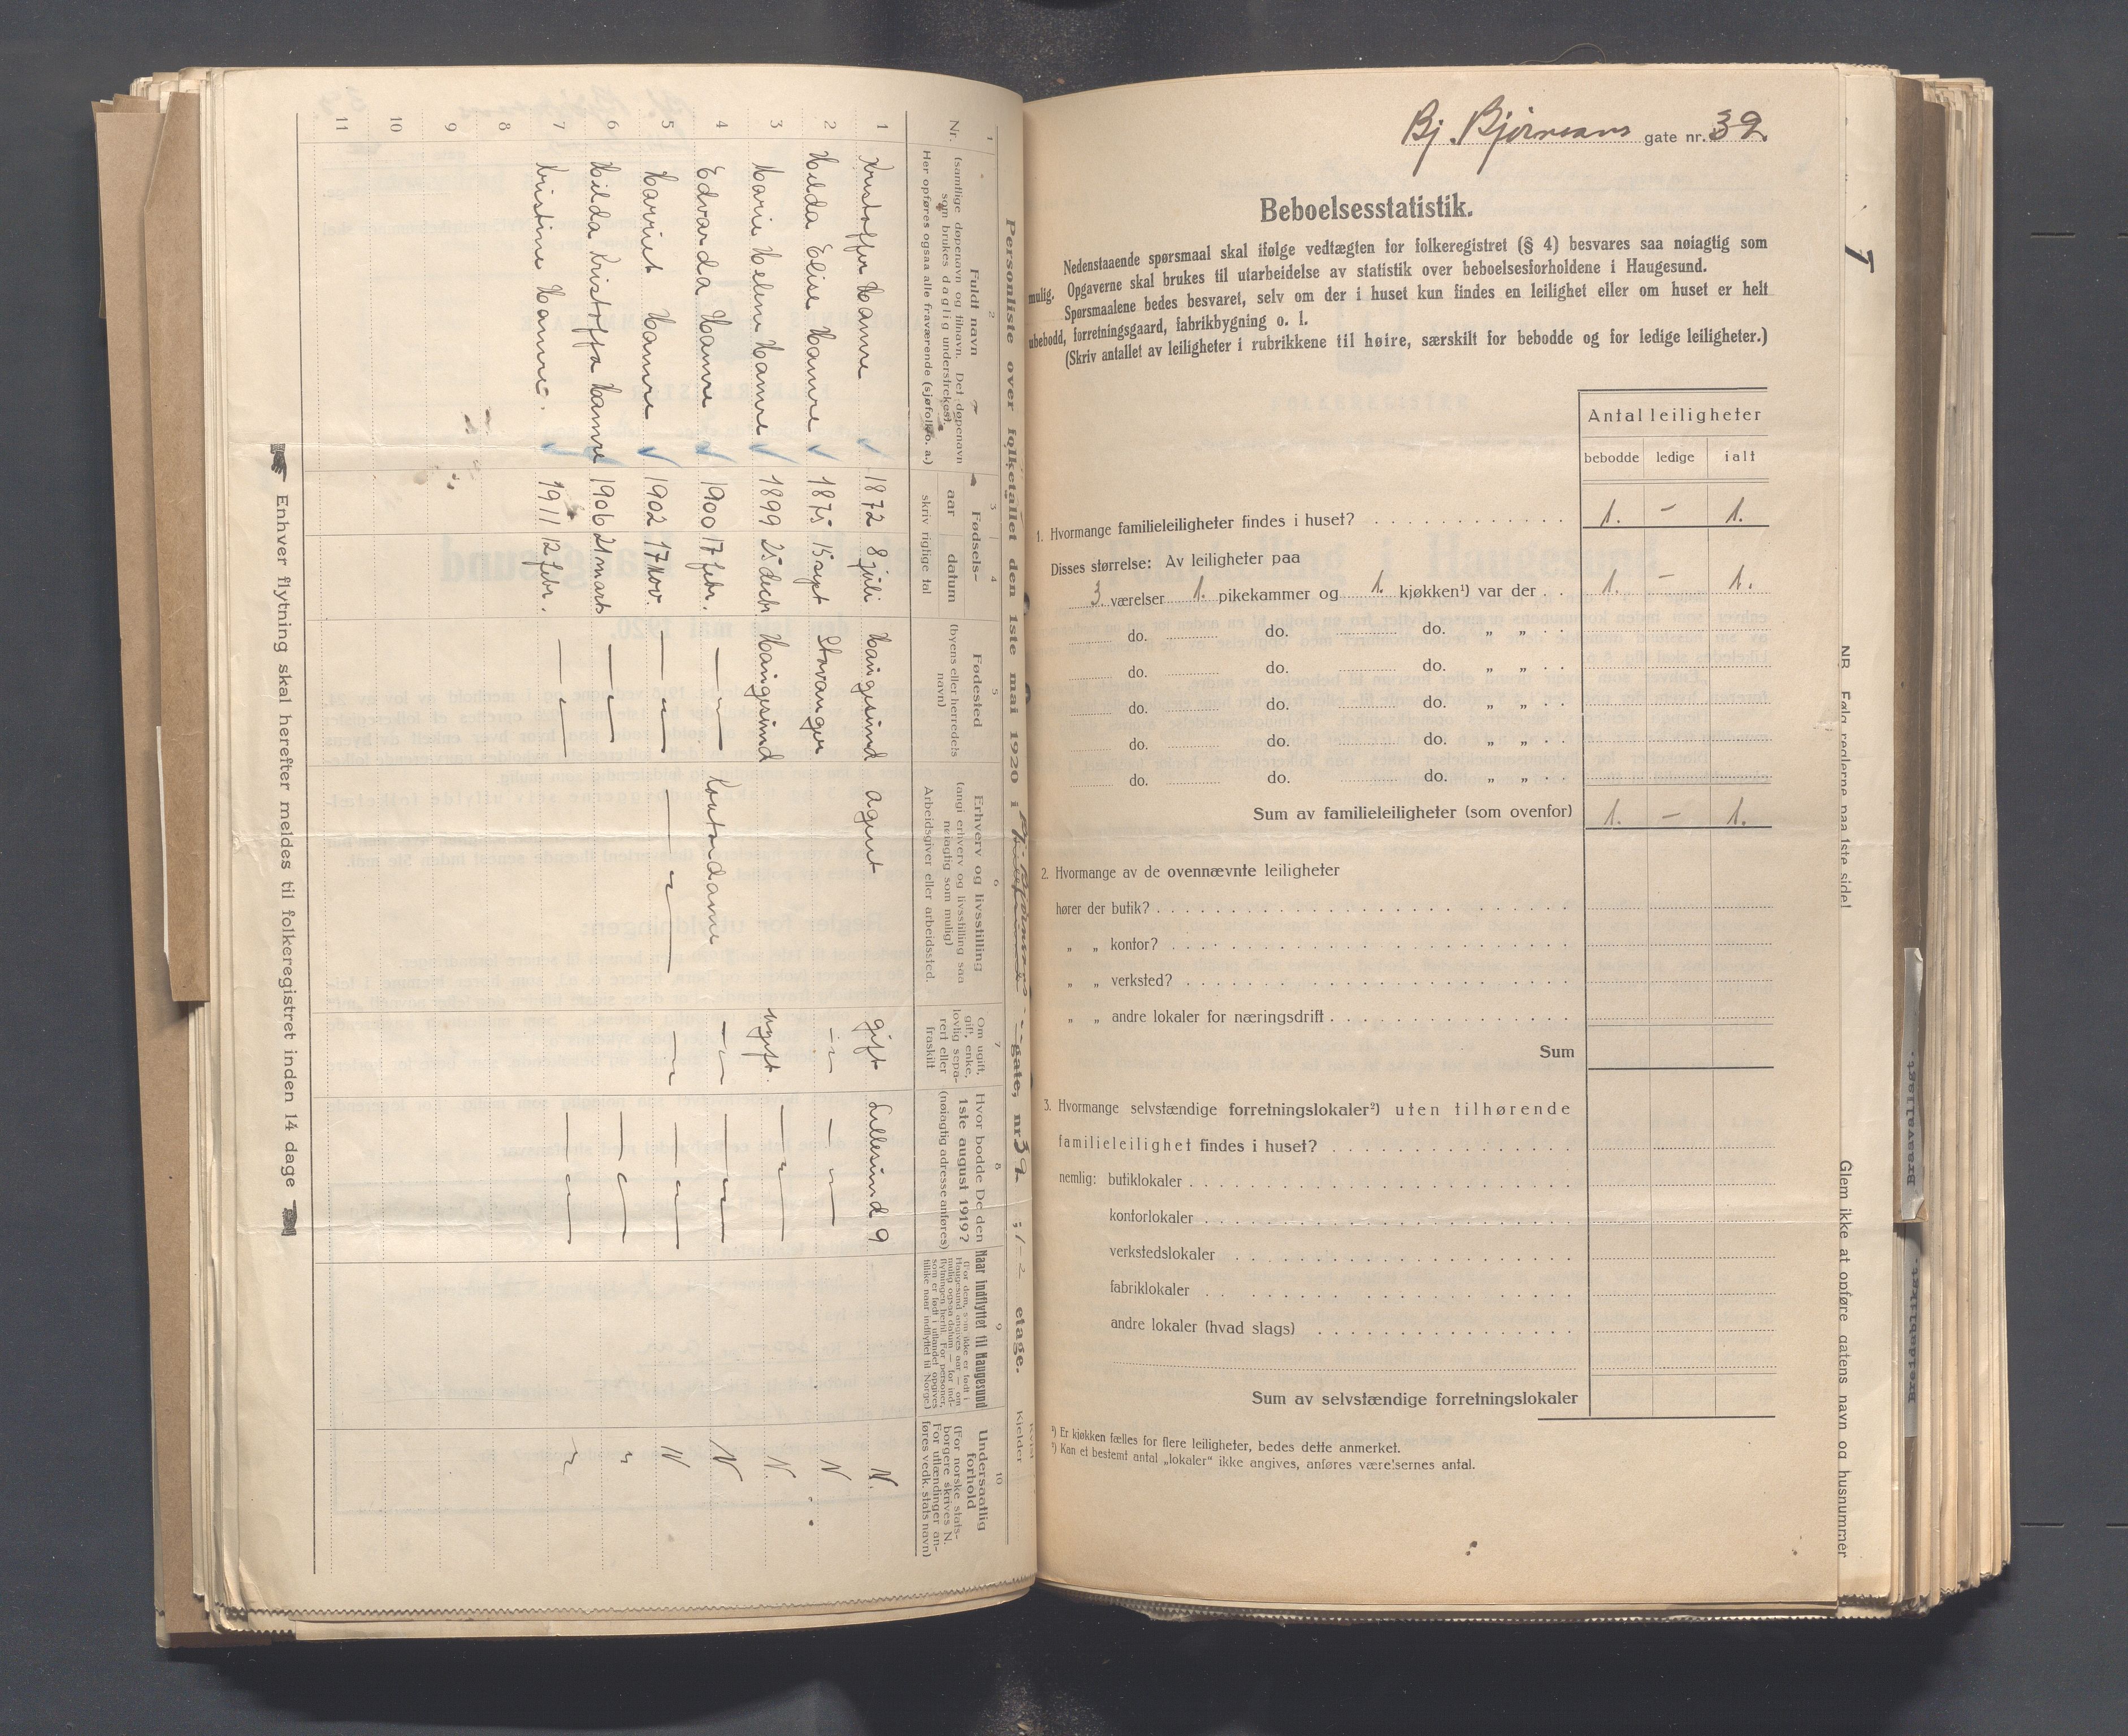 Personliste over folketallet den 1ste mai 1920 i Bj. Bjørnsons gate, nr. 39 ; 1-2 etage.
Kjelder
1 2 3 4 5 6 7 8 9 10
Nr. Fuldt navn (samtlige døpenavn og tilnavn. Det døpenavn som brukes daglig understrekes). Her opføres ogsaa alle fraværende (sjøfolk o. a.)
Fødsels- aar datum skriv rigtige tal
Fødested (byens eller herredets navn)
Erhverv og livsstilling (angi erhverv og livsstilling saa nøiagtig som mulig) Arbeidsgiver eller arbeidssted.
Om ugift, gift, enke, lovlig separert eller fraskilt
Hvor bodde De den 1ste august 1919? (nøiagtig adresse anføres)
Naar indflyttet til Haugesund (For dem, som ikke er født i Haugesund angives aar — om mulig ogsaa datum — for indflytningen hertil. For personer, som er født i utlandet opgives tillike naar indflyttet til Norge.)
Undersaatlig forhold (For norske statsborgere skrives N. For utlændinger anføres vedk. stats navn)
1 Kristoffer Hamre 1872 8 juli Haugesund agent gift Lillesund 9 N.
2 Helda Elise Hamre 1875 15 sept Stavanger — " — — " — N
3 Marie Helene Hamre 1899 25 decbr Haugesund ugift. — " — N.
4 Edvarda Hamre 1900 17 febr. — " — Kontordame — " — — " — N
5 Harriet Hamre 1902 17 nov. — " — — " — " — " — N
6 Hilda Kristoffa Hamre 1906 21 marts — " — — " — "
7 Kristine Hamre. 1911 12 febr. — " — — " — "
8
9
10
11
Enhver flytning skal herefter meldes til folkeregistret inden 14 dage
Bj. Bjørnsons gate nr. 39
Beboelsesstatistik.
Nedenstaaende spørsmaal skal ifølge vedtægten for folkeregistret (§ 4) besvares saa nøiagtig som
mulig. Opgaverne skal brukes til utarbeidelse av statistik over beboelsesforholdene i Haugesund.
Spørsmaalene bedes besvaret, selv om der i huset kun findes en leilighet eller om huset er helt
ubebodd, forretningsgaard, fabrikbygning o. l.
(Skriv antallet av leiligheter i rubrikkene til høire, særskilt for bebodde og for ledige leiligheter.)
Antal leiligheter
bebodde ledige ialt
1. Hvormange familieleiligheter findes i huset? 1. – 1.
Disses størrelse: Av leiligheter paa
3 værelser 1. pikekammer og 1. kjøkken¹) var der . . 1. – 1.
do. do. do. „ „ . .
do. do. do. „ „ . .
do. do. do. „ „ . .
do. do. do. „ „ . .
do. do. do. „ „ . .
Sum av familieleiligheter (som ovenfor) 1. – 1.
2. Hvormange av de ovennævnte leiligheter
hører der butik?
„ „ kontor?
„ „ verksted?
„ „ andre lokaler for næringsdrift
Sum
3. Hvormange selvstændige forretningslokaler²) uten tilhørende
familieleilighet findes i huset?
nemlig: butiklokaler
kontorlokaler
verkstedslokaler
fabriklokaler
andre lokaler (hvad slags)
Sum av selvstændige forretningslokaler
¹) Er kjøkken fælles for flere leiligheter, bedes dette anmerket.
²) Kan et bestemt antal „lokaler" ikke angives, anføres værelsernes antal.
NB. Følg reglerne paa 1ste side!
Glem ikke at opføre gatens navn og husnummer
Braavallagt.
Breidablikgt.